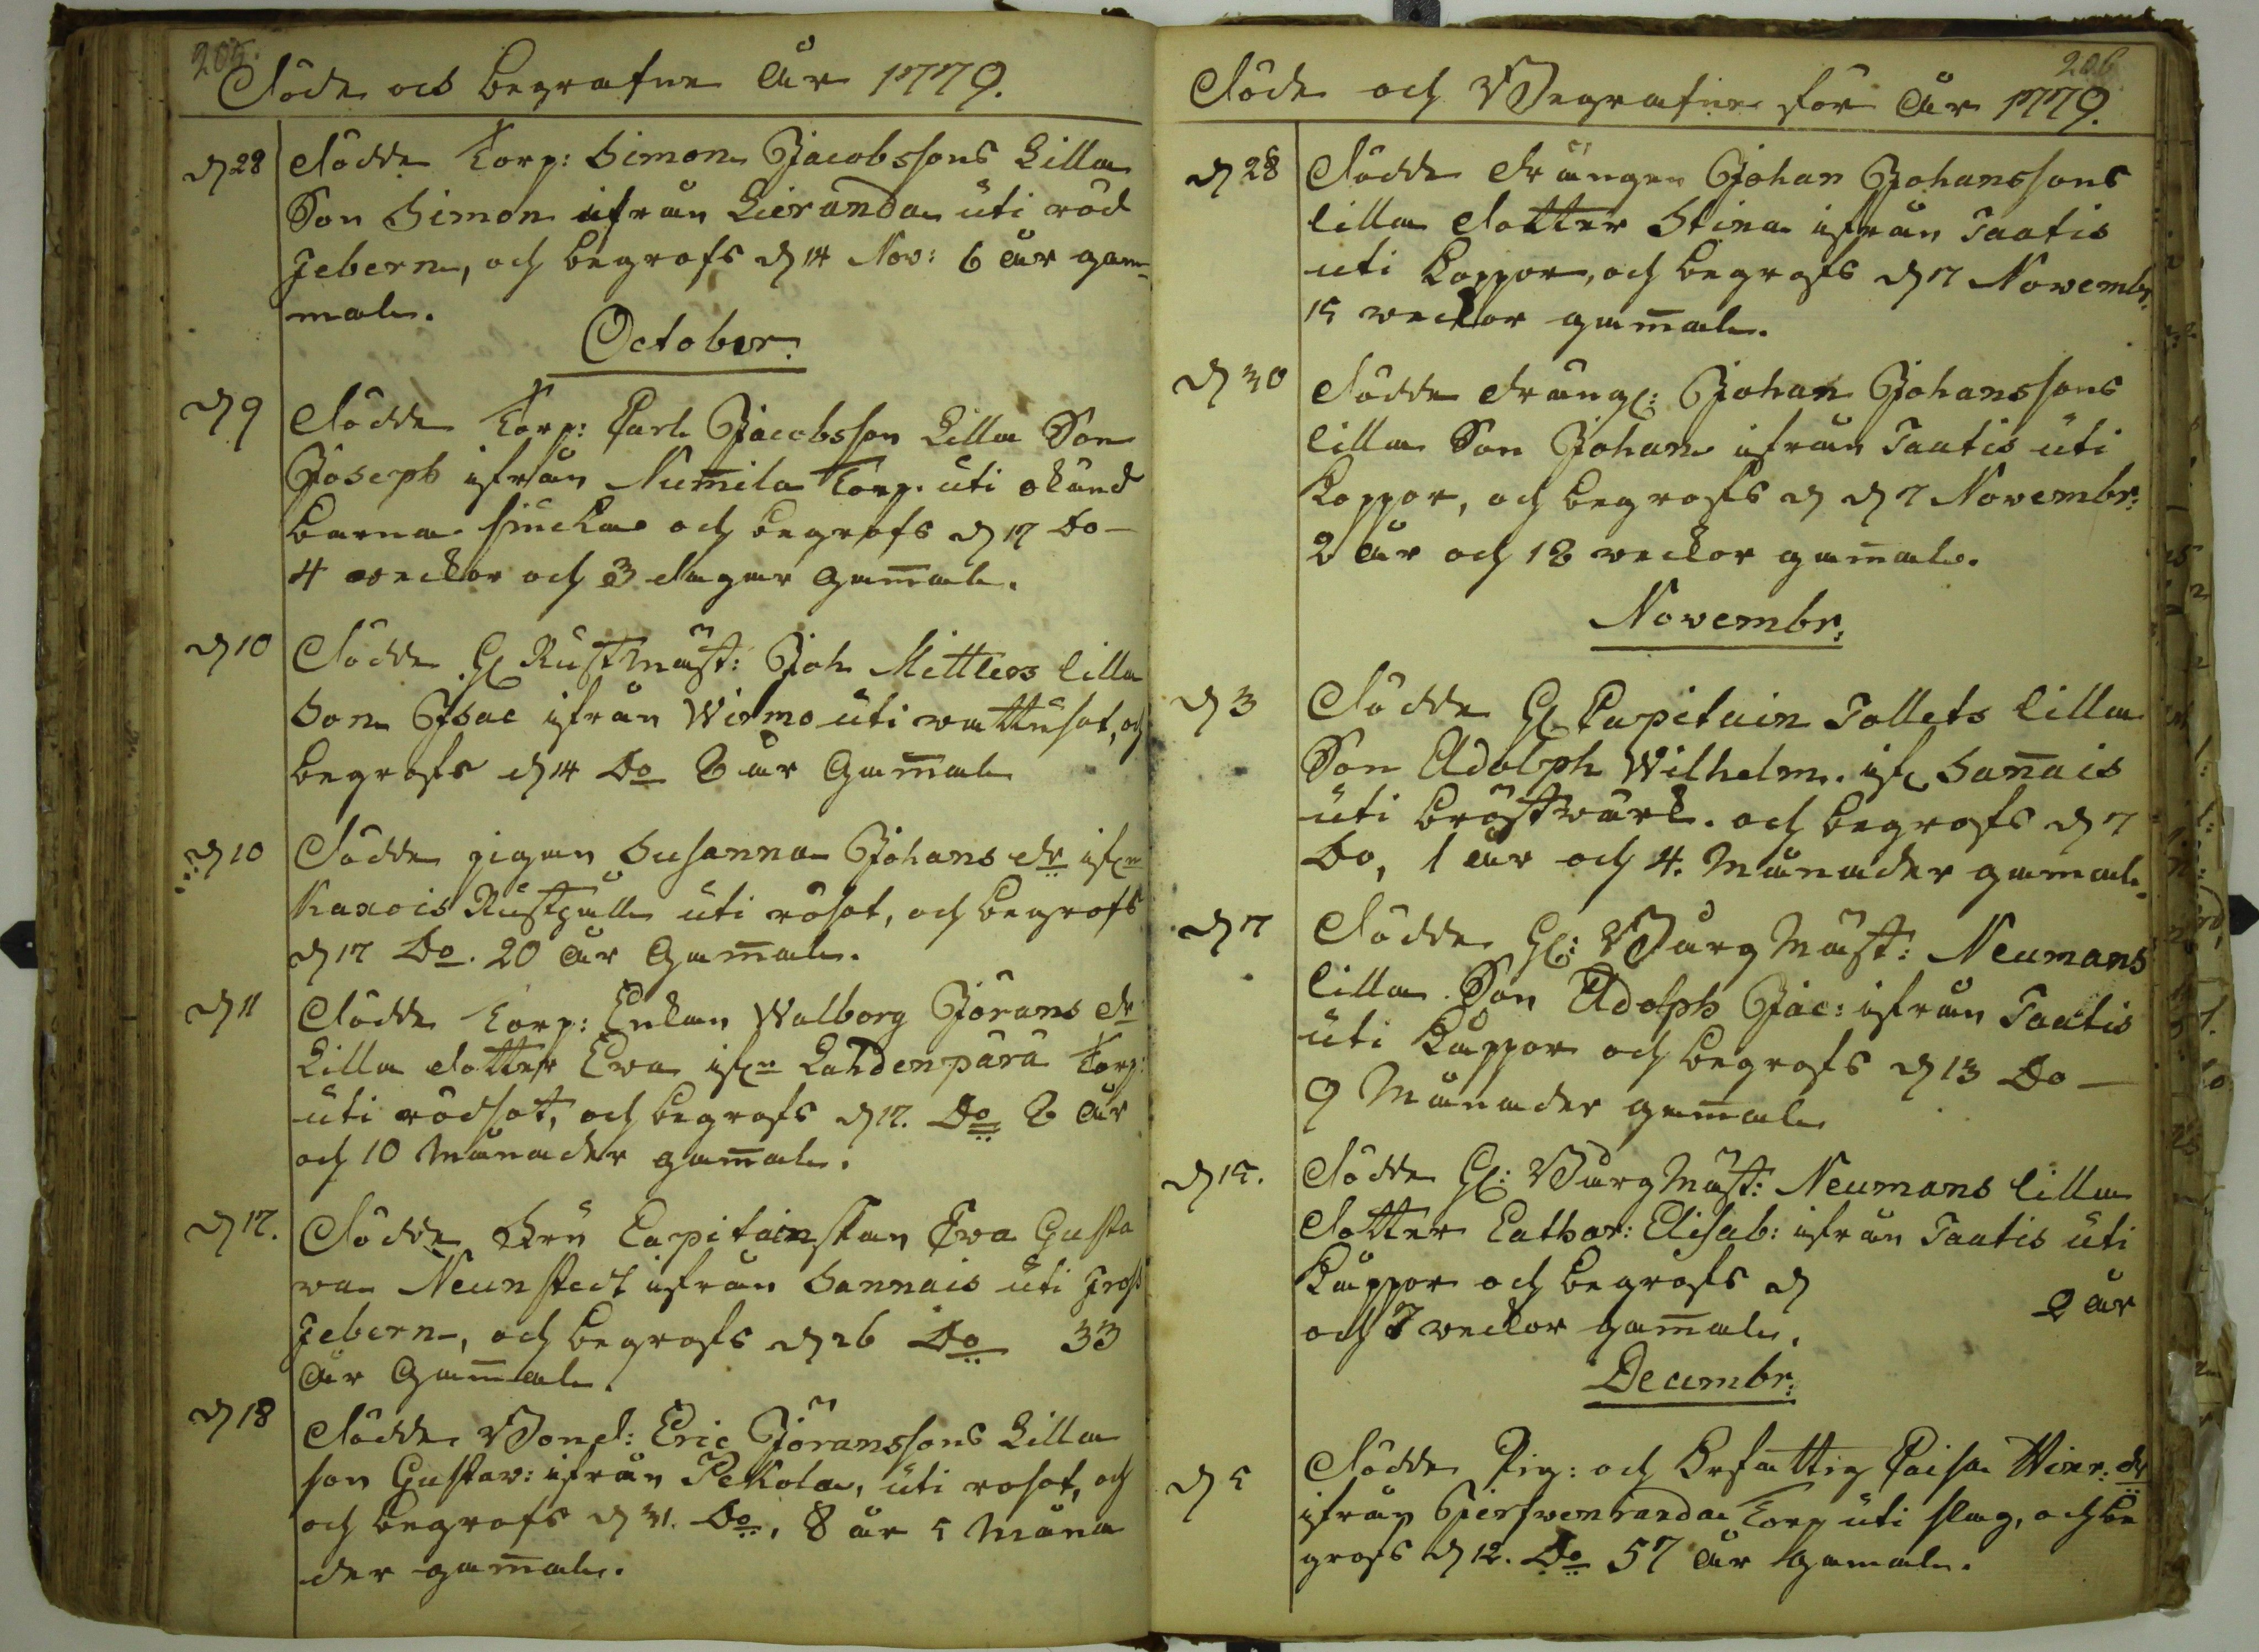 205.
Döde och begrafne År 1779.
d 28 Dödde Torp: Simon Jacobssons Lilla
Son Simon ifrån Lieranda uti röd
febern, och begrofs d 14 Nov: 6 år gam-
mal.
October.
d 9 Dödde Torp: Carl Jacobsson Lilla Son
Joseph ifrån Num̅ila Torp. uti okänd
barna siucka och begrofs d 17 Do
4 weckor och 3 dagar Gam̅al.
d 10 Dödde H Rustmäst: Joh Mittlers lilla
Son Isac ifrån Wirmo uti wattusot, och
begrofs d 14 Do 2 år Gam̅al
d 10 Dödde pigan Susanna Johans dr
Rusthåll uti rösot, och begrofs
d 17 Do. 20 År Gam̅al.
d 11 Dödde Torp: Enkan Walborg Jörans dr
Lilla dotter Ewa ifrn Lahdenpärä Torp:
uti rödsot, och begrofs d 17. Do 2 År
och 10 Månader gam̅al.
d 17. Dödde Fru Capitainskan Ewa Gusta
va Neunstedt ifrån Sannais uti
febern, och begrofs d 26 Do 33
År Gam̅al.
d 18 Dödde Bond: Eric Jöranssons Lilla
son Gustav: ifrån Pekola, uti rosot, och
och begrofs d 31. Do. 8 år 5 Måna
der gam̅al.
206
Döde och Begrafne för År 1779.
d 28 Dödde drängen Johan Johanssons
lilla dotter Stina ifrån Taatis
uti koppor, och begrofs d 7 Novembr.
15 weckor gam̅al.
d 30 Dödde dräng: Johan Johanssons
lilla Son Johan ifrån Taatis uti
koppor, och begrofs d d 7 Novembr:
2 År och 18 weckor gam̅al.
Novembr:
d 3 Dödde H Capitain Tollets lilla
Son Adolph Wilhelm. if San̅ais
uti bröstwärk. och begrofs d 7
Do, 1 År och 4. Månader gamal.
d 7 Dödde H: Burg Mäst: Neumans
lilla Son Adolph Jac: ifrån Taatis
uti kåppor och begrofs d 13 Do
9 Månader gam̅al
d 15. Dödde H: Burg Mäst: Neumans lilla
dotter Cathar: Elisab: ifrån Taatis uti
kåppor och begrofs d 2 år
och 7 weckor gam̅al.
Decembr:
d 5 Dödde Pig: och Caisa dr
ifrån Torp uti slag, och be
grofs d 12. Do 57 År gamal.